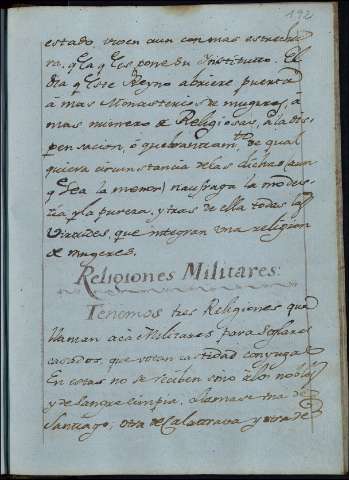 192
estado, viven aun con mas estrechu
ra, qe la qe les pone su Instituto. El
dia qe este Reyno abriere puerta
à mas Monasterios de mugeres, à
mas numero de Religiosas, à la dis
pensacion, ò quebrantamto de qual
quiera circunstancia de las dichas (aun
qe sea la menor) naufraga la modes
tia, y la pureza, y tras de ella todas las
Virtudes, que integran una religion
de mugeres.
Religiones Militares:
Tenemos tres Religiones que
llaman acà Militares para Seglares
casados, que votan castidad conyugal.
En estas no se reciben sino à los nobles
y de sangre limpia; llamase una de
Santiago; otra de Calatrava y otra de